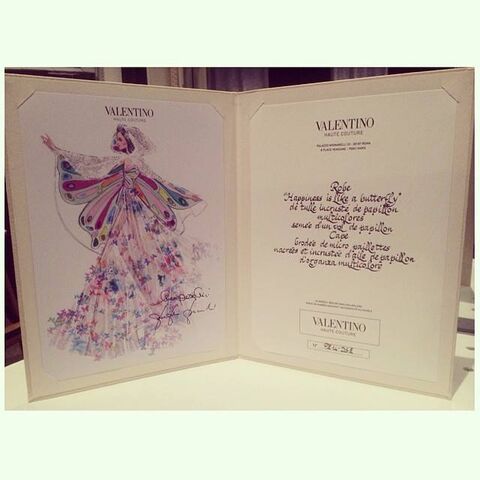 VALENTINO
HAUTE COUTURE
VALENTINO
HAUTE COUTURE
Robe
"Happiness is like a butterfly"
de tulle incrusté de papillon
multicolores
semée d'un vol de papillon
Cape
brodée de micro paillettes
nacrées et incrustée d'aile de papillon
d'organza multicolore
VALENTINO
HAUTE COUTURE